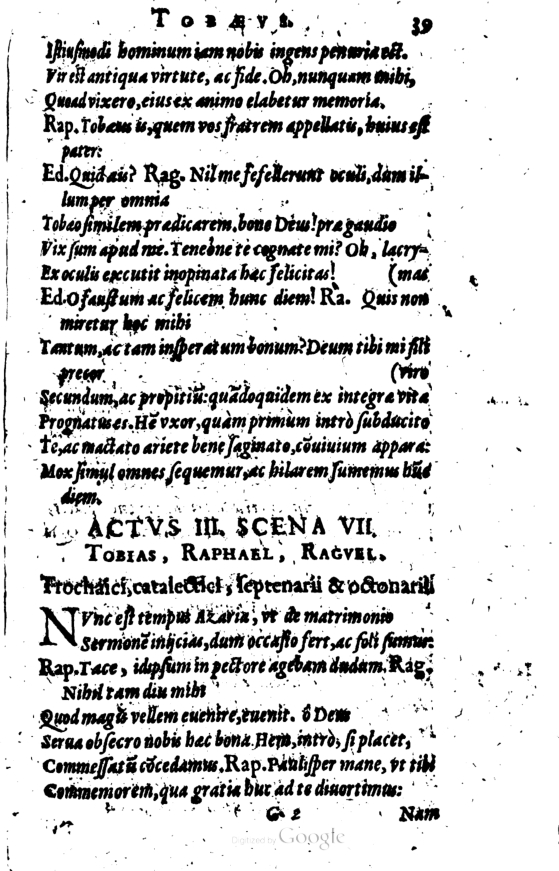 TOBÆVS. 39
Istiusmodi hominum iam nobis ingens penuria est.
Vir est antiqua virtute, ac fide. Oh, nunquam mihi,
Quoad vixero, eius ex animo elabetur memoria.
Rap. Tobæus is, quem vos fratrem appellatis, huius est
pater.
Ed. Quid ais? Rag. Nil me fefellerunt oculi, dum il-
lum per omnia
Tobæo similem prædicarem, bone Deus! præ gaudio
Vix sum apud me. Teneóne te cognate mi? Oh, lacry-
Ex oculis excutit inopinata hæc felicitas! (mas
Ed. O faustum ac felicem hunc diem! Ra. Quis non
miretur hoc mihi
Tantum, ac tam insperatum bonum? Deum tibi mi fili
precor (viro
Secundum, ac propitiũ: quãdoquidem ex integræ vitæ
Prognatus es. Hẽ vxor, quàm primùm intrò subducito
Te, ac mactato ariete bene saginato, cõuiuium appara:
Mox simul omnes sequemur, ac hilarem sumemus hũc
diem.
ACTVS III. SCENA VII.
TOBIAS, RAPHAEL, RAGVEL.
Trochaici, catalectici, septenarii & octonarii
NVnc est tempus Azaria, vt de matrimonio
Sermonẽ inijcias, dum occasio fert, ac soli sumus:
Rap. Tace, idipsum in pectore agebam dudum. Rag.
Nihil tam diu mihi
Quod magis vellem euenire, euenit. ô Deus
Serua obsecro nobis hæc bona. Hem, intrò, si placet,
Commessatũ cõcedamus. Rap. Paulisper mane, vt tibi
Commemorem, qua gratia huc ad te diuortimus:
G 2 Nam
Digitized by Google